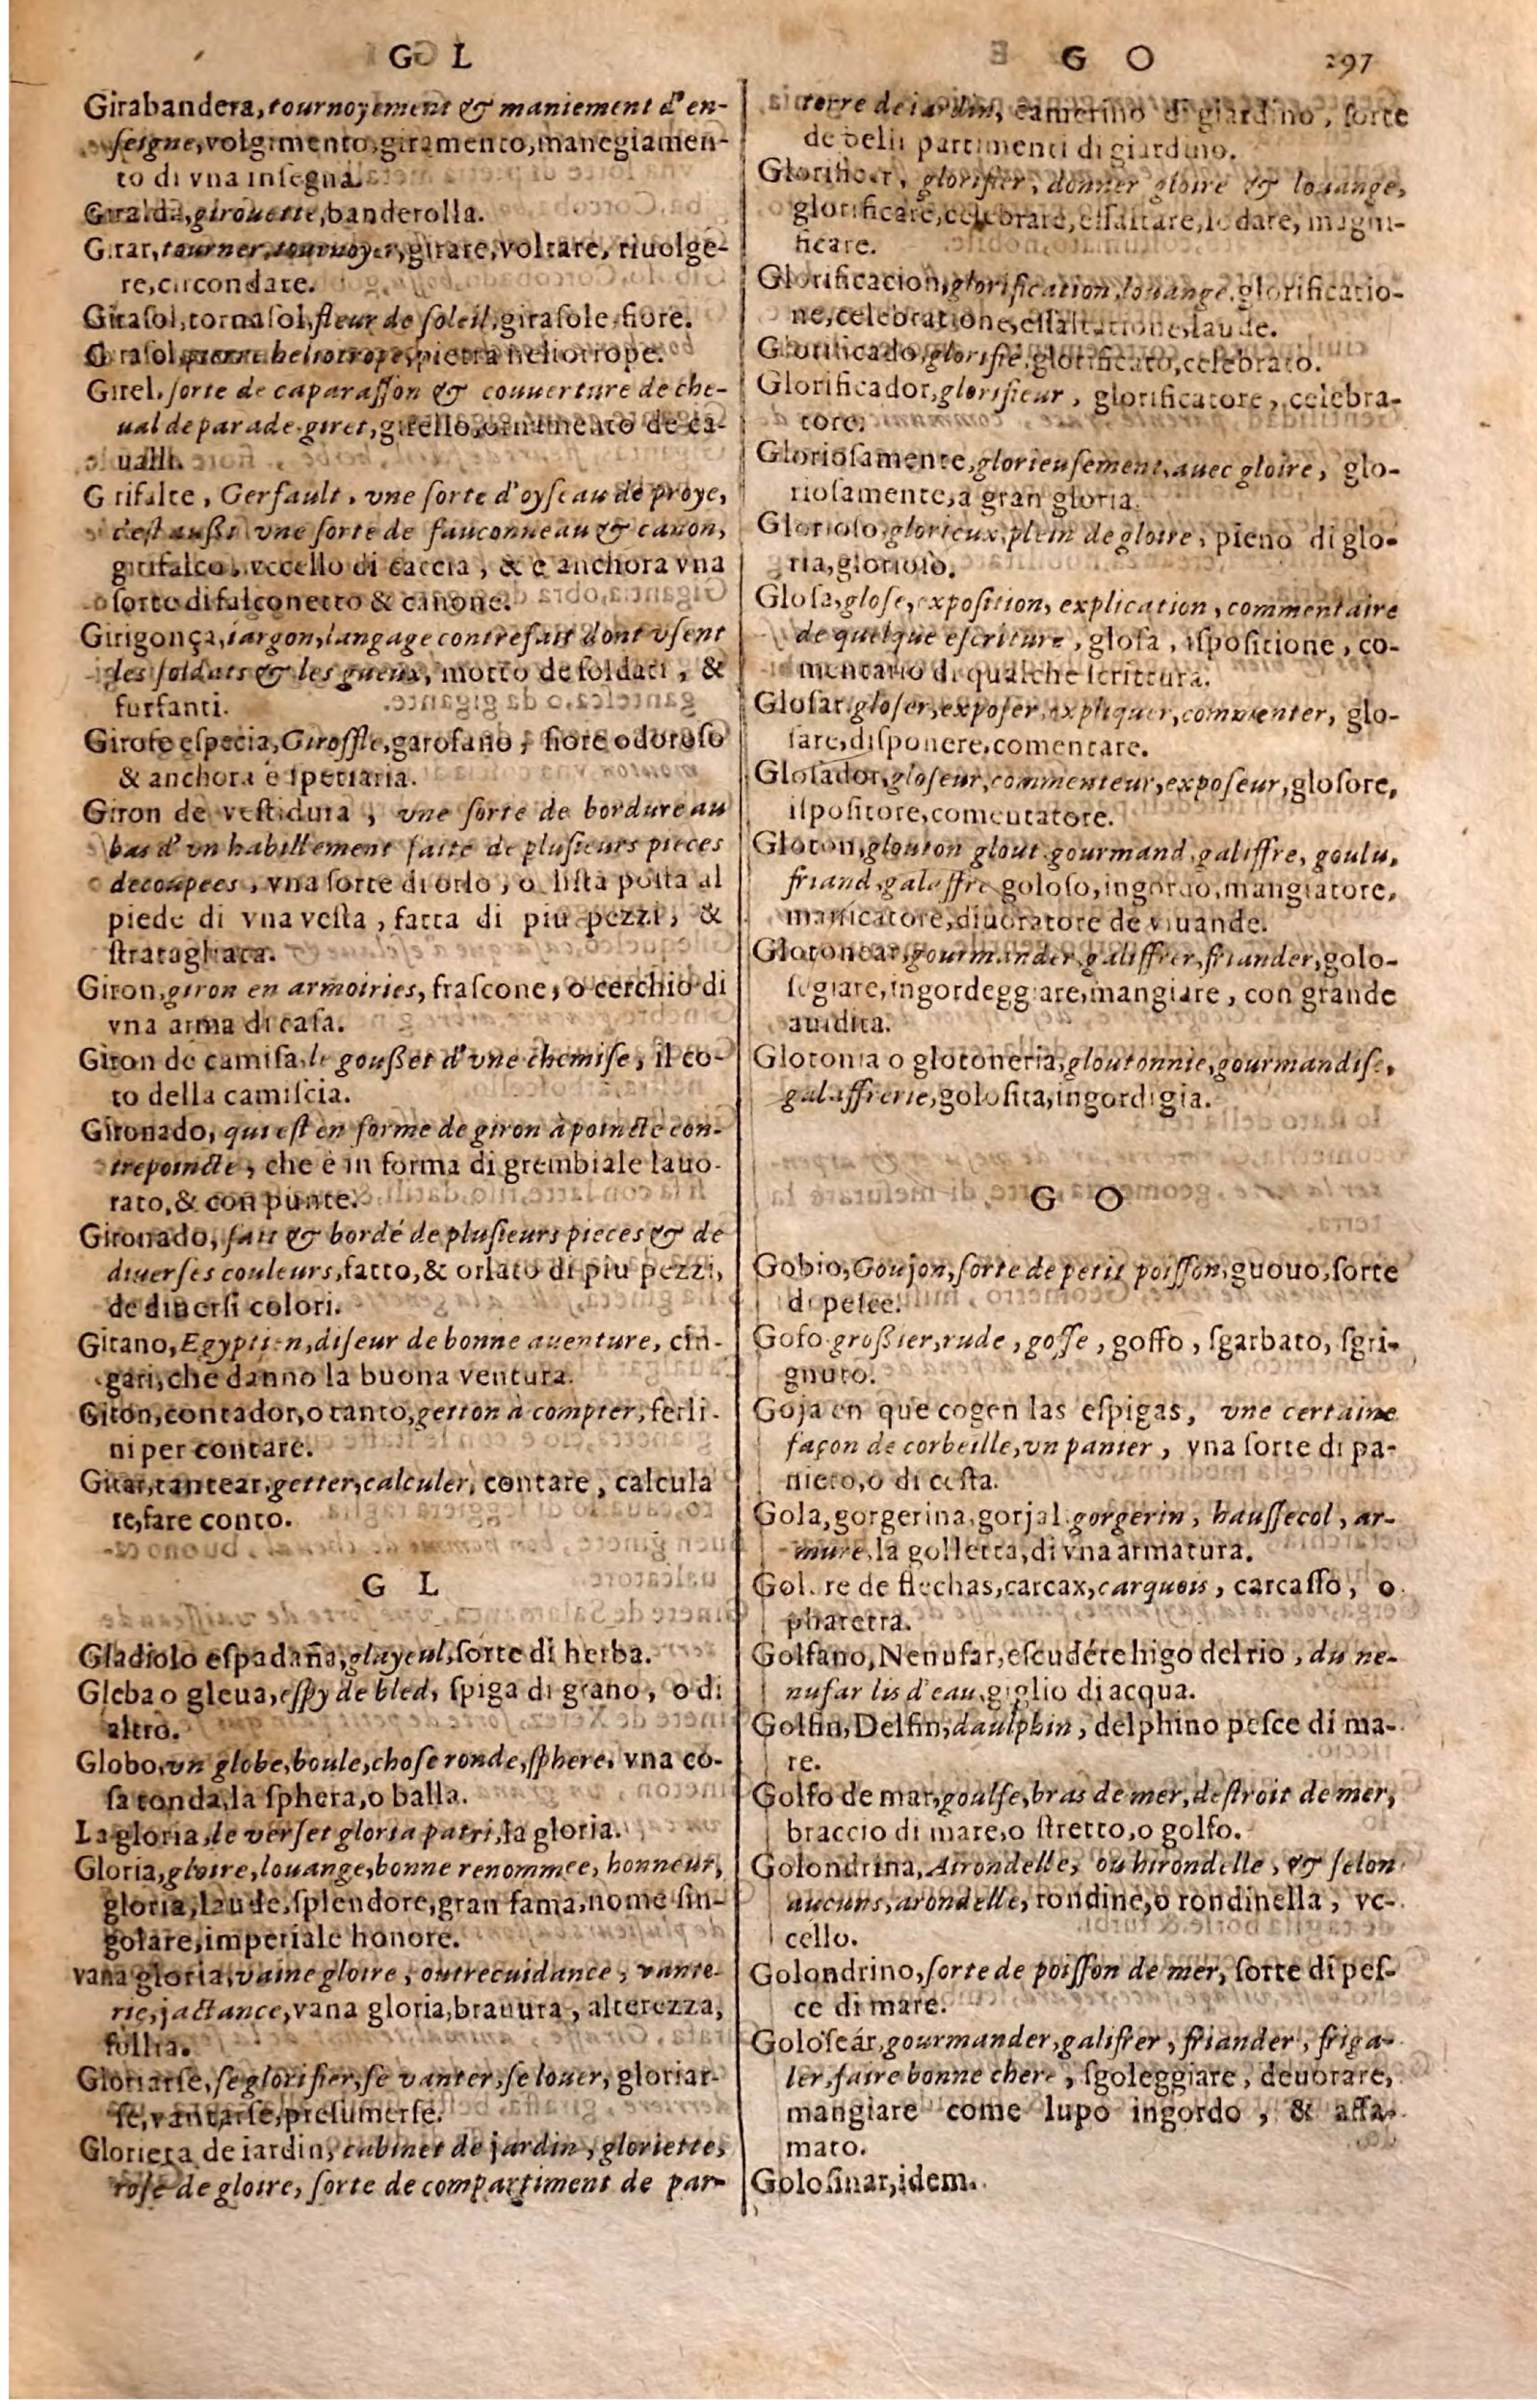 G L
Girabandera, tournoyement & maniement d'en-
seigne, volgimento, giramento, manegiamen-
to di vna insegna.
Giralda, girouette, banderolla.
Girar, tourner, tournoyer, girare, voltare, riuolge-
re, circondare.
Girasol, tornasol, fleur de soleil, girasole, fiore.
Girasol, pierre heliotrope, pietra heliotrope.
Girel, sorte de caparasson & couuerture de che-
ual de parade, giret, girello, ornamento de ca-
ualli.
Girifalte, Gerfault, vne sorte d'oyseau de proye,
c'est außi vne sorte de fauconneau & canon,
girifalco, vccello di caccia, & è anchora vna
sorte di falconetto & canone.
Girigonça, iargon, langage contrefait dont vsent
les soldats & les gueux, motto de soldati, &
furfanti.
Girofe especia, Giroffle, garofano, fiore odoroso
& anchora è spetiaria.
Giron de vestidura, vne sorte de bordure au
bas d'vn habillement faite de plusieurs pieces
decoupees, vna sorte di orlo, o lista posta al
piede di vna vesta, fatta di piu pezzi, &
stratagliata.
Giron, giron en armoiries, frascone, o cerchio di
vna arma di casa.
Giron de camisa, le goußet d'vne chemise, il co-
to della camiscia.
Gironado, qui est en forme de giron à poincte con-
trepoincte, che è in forma di grembiale lauo-
rato, & con punte.
Gironado, fait & bordé de plusieurs pieces & de
diuerses couleurs, fatto, & orlato di piu pezzi,
de diuersi colori.
Gitano, Egyptien, diseur de bonne auenture, cin-
gari, che danno la buona ventura.
Giton, contador, o tanto, getton à compter, ferli-
ni per contare.
Gitar, tantear, getter, calculer, contare, calcula
re, fare conto.
G L
Gladiolo espadaña, glayeul, sorte di herba.
Gleba o gleua, espy de bled, spiga di grano, o di
altro.
Globo, vn globe, boule, chose ronde, sphere, vna co-
sa tonda, la sphera, o balla.
La gloria, le verset gloria patri, la gloria.
Gloria, gloire, louange, bonne renommee, honneur,
gloria, laude, splendore, gran fama, nome sin-
golare, imperiale honore.
vana gloria, vaine gloire, outrecuidance, vante-
rie, jactance, vana gloria, brauura, alterezza,
follia.
Gloriarse, se glorifier, se vanter, se louer, gloriar-
se, vantarse, presumerse.
Glorieta de iardin, cabinet de jardin, gloriette,
rose de gloire, sorte de compartiment de par-
G O 297
terre de iardin, camerino di giardino, sorte
de belli partimenti di giardino.
Glorificar, glorifier, donner gloire & louange,
glorificare, celebrare, essaltare, lodare, magni-
ficare.
Glorificacion, glorification, louange, glorificatio-
ne, celebratione, essaltatione, laude.
Glorificado, glorifié, glorificato, celebrato.
Glorificador, glorifieur, glorificatore, celebra-
tore.
Gloriosamente, glorieusement, auec gloire, glo-
riosamente, a gran gloria.
Glorioso, glorieux, plein de gloire, pieno di glo-
ria, glorioso.
Glosa, glose, exposition, explication, commentaire
de quelque escriture, glosa, ispositione, co-
mentario di qualche scrittura.
Glosar, gloser, exposer, expliquer, commenter, glo-
sare, disponere, comentare.
Glosador, gloseur, commenteur, exposeur, glosore,
ispositore, comentatore.
Gloton, glouton glout, gourmand, galiffre, goulu,
friand, galaffre goloso, ingordo, mangiatore,
masticatore, diuoratore de viuande.
Glotonear, gourmander, galiffrer, friander, golo-
segiare, ingordeggiare, mangiare, con grande
auidita.
Glotonia o glotoneria, gloutonnie, gourmandise,
galaffrerie, golosita, ingordigia.
G O
Gobio, Goujon, sorte de petit poisson, guouo, sorte
di pesce.
Gofo großier, rude, gosse, goffo, sgarbato, sgri-
gnuto.
Goja en que cogen las espigas, vne certaine
façon de corbeille, vn panier, vna sorte di pa-
niero, o di cesta.
Gola, gorgerina, gorjal, gorgerin, haussecol, ar-
mure, la golletta, di vna armatura.
Gol. re de flechas, carcax, carquois, carcasso, o
pharetra.
Golfano, Nenufar, escudéte higo del rio, du ne-
nufar lis d'eau, giglio di acqua.
Golfin, Delfin, daulphin, delphino pesce di ma-
re.
Golfo de mar, goulfe, bras de mer, destroit de mer,
braccio di mare, o stretto, o golfo.
Golondrina, Airondelle, ou hirondelle, & selon
aucuns, arondelle, rondine, o rondinella, vc-
cello.
Golondrino, sorte de poisson de mer, sorte di pes-
ce di mare.
Golosear, gourmander, galifrer, friander, friga-
ler, faire bonne chere, sgoleggiare, deuorare,
mangiare come lupo ingordo, & affa-
mato.
Golosinar, idem.